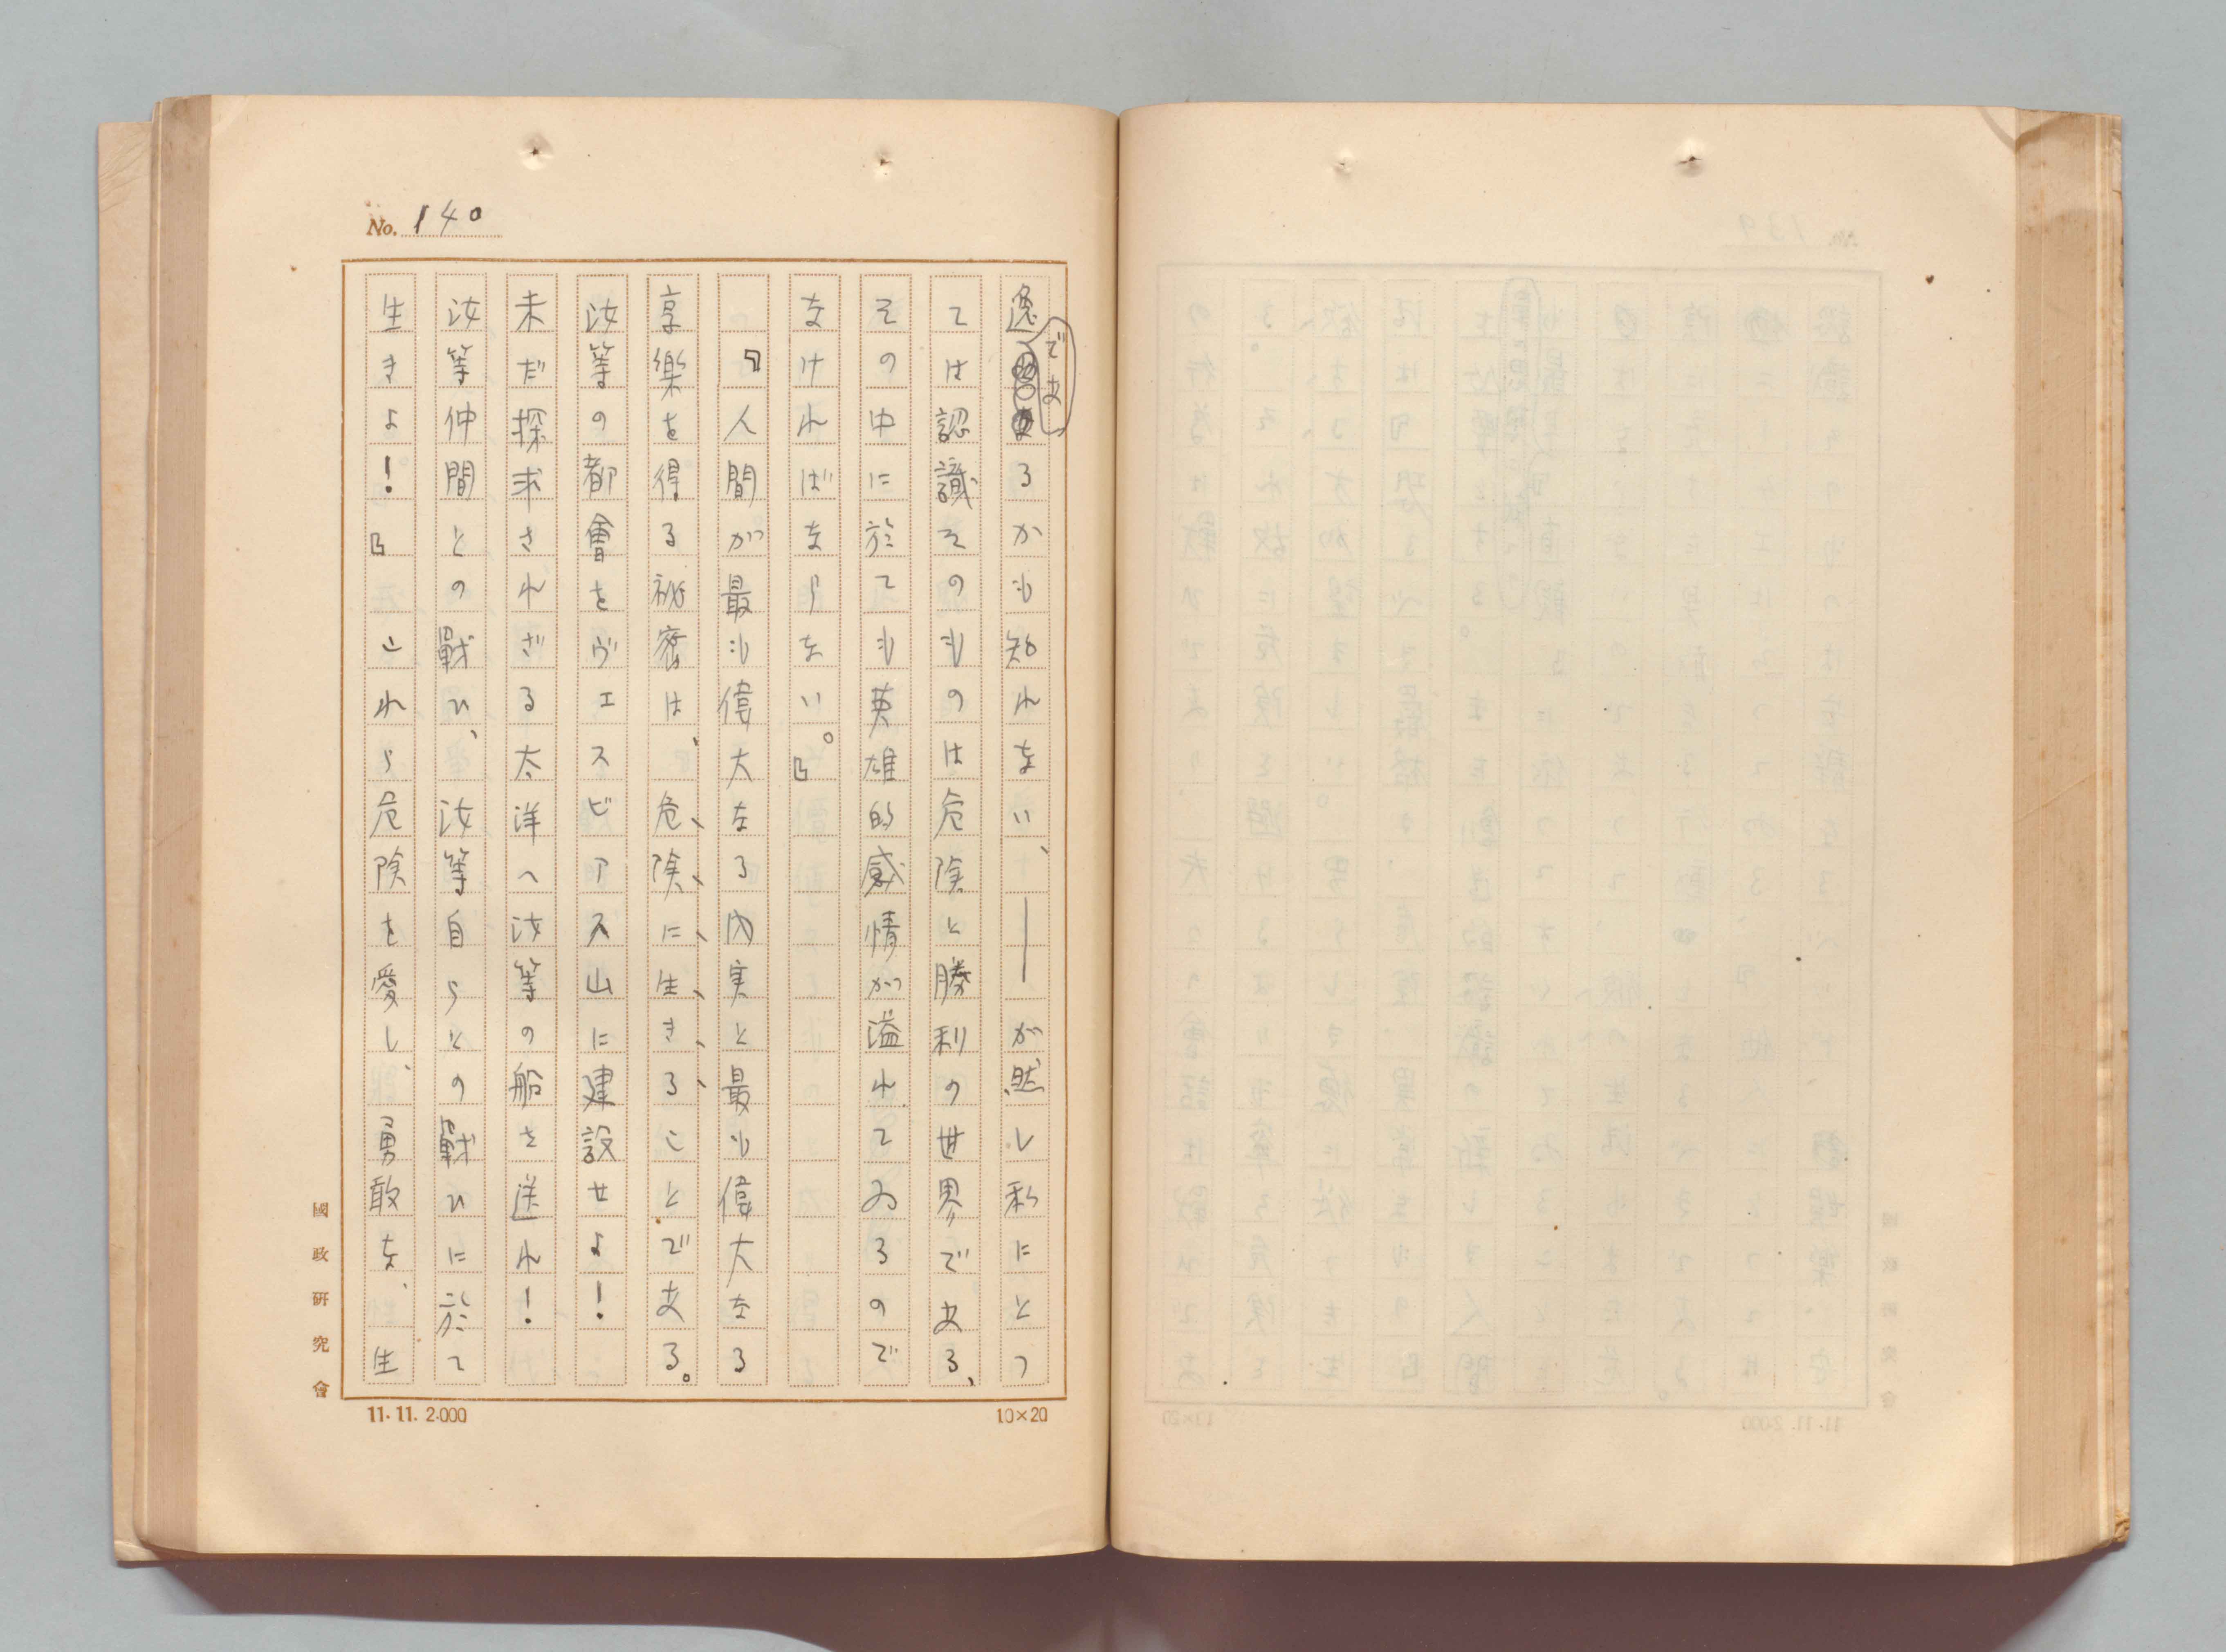 No. 140
逸であるかも知れない、――が然し私にとつ
ては認識そのものは危険と勝利の世界である、
その中に於ても英雄的感情が溢れてゐるので
なければならない。』
『人間が最も偉大なる内実と最も偉大なる
享樂を得る秘密は、危険に生きることである。
汝等の都會をヴエスビアス山に建設せよ!
未だ探求されざる太洋へ汝等の船を送れ!
汝等仲間との戰ひ、汝等自らとの戰ひに於て
生きよ!』これら危険を愛し、勇敢な、生
國政研究會
11.11.2.000
10×20